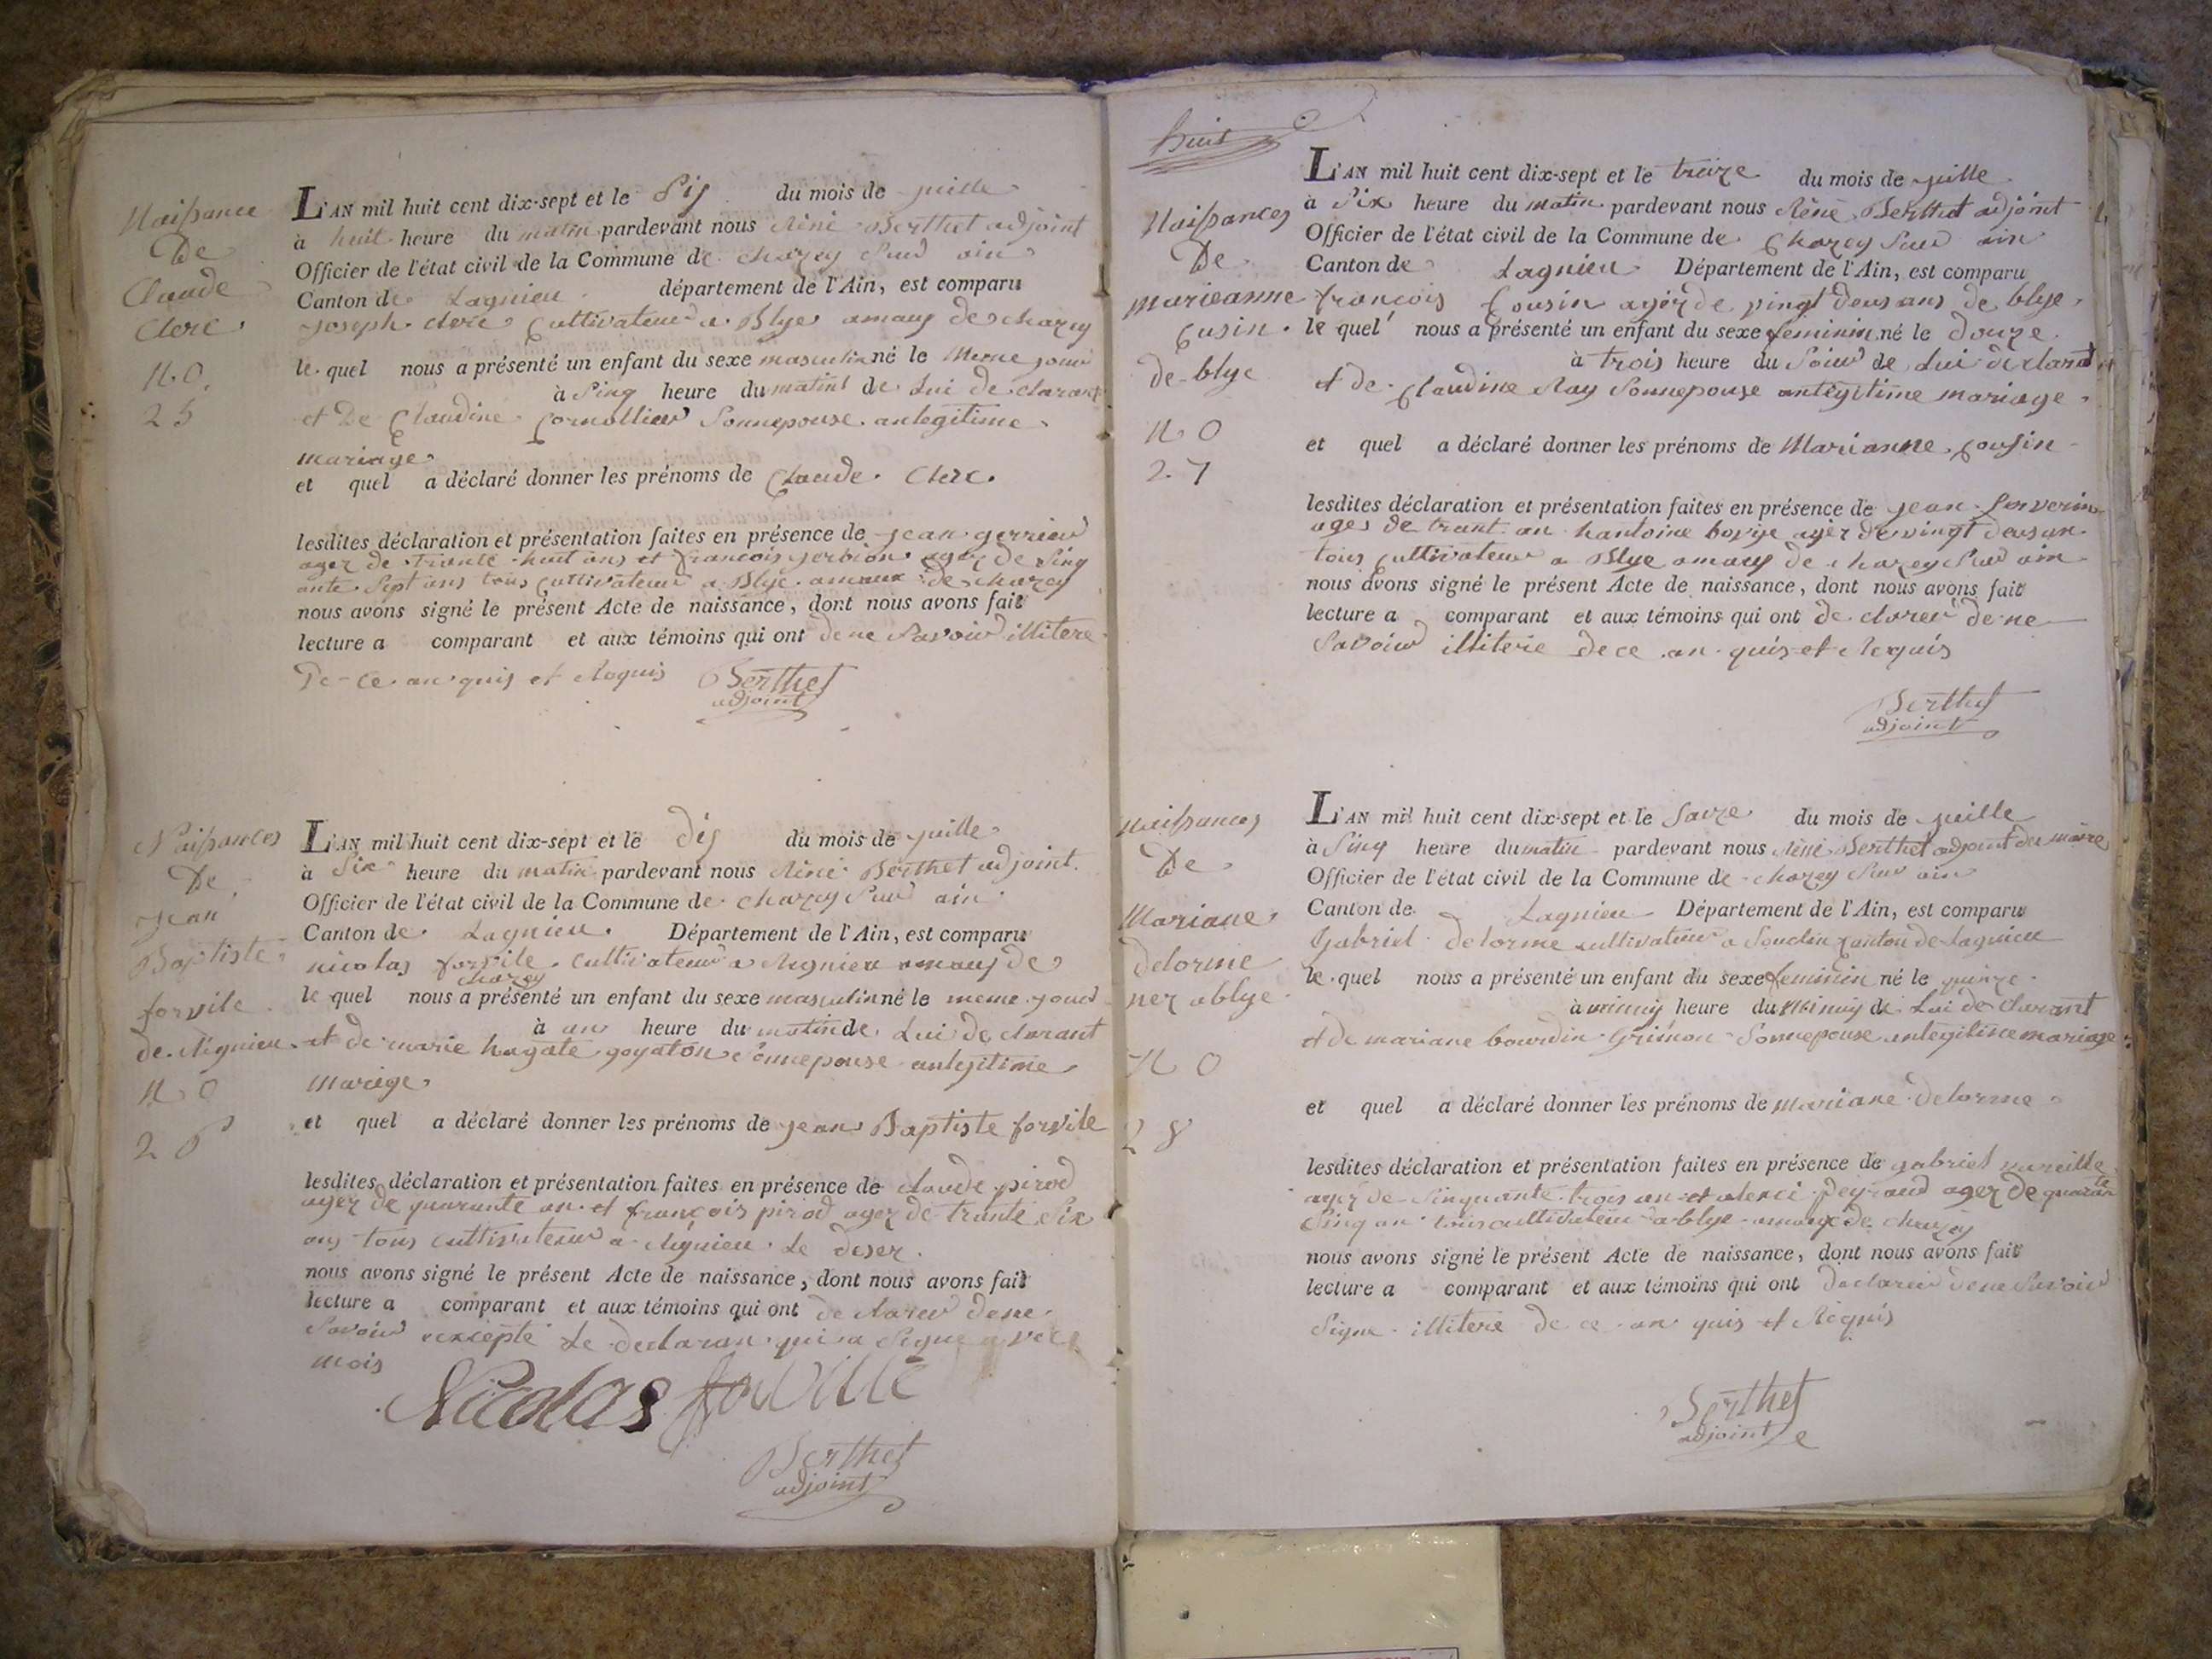 Naissance
De
Claude
Clerc
N.o
25
L'AN mil huit cent dix-sept et le Sis du mois de juille
à huit heure du matin pardevant nous Réné Berthet adjoint
Officier de l'état civil de la Commune de chazey Sur ain
Canton de Lagnieu département de l'Ain, est comparu
Joseph clerc Cultivateur a Blye amaux de chazey
le quel nous a présenté un enfant du sexe masculin né le meme jour
à Sinq heure du matins de Lui de clarant
et De Claudine Cornollier Sonnepouse anlegitime
mariage
et quel a déclaré donner les prénoms de Claude Clerc.
lesdites déclaration et présentation faites en présence de jean
ager de trante huit ans et francois gerbion ager de Sinq
ante Sept ans tous Cultivateur a Blye amaux de chazey
nous avons signé le présent Acte de naissance, dont nous avons fait
lecture a comparant et aux témoins qui ont de ne Savoir illitere
De ce an quis et Requis
Berthet
adjoint
Naissances
De
Jean
Baptiste
forvile
de Rignieu
N.o
26
L'AN mil huit cent dix-sept et le dis du mois de juille
à Six heure du matin pardevant nous Réné Berthet adjoint
Officier de l'état civil de la Commune de chazey Sur ain
Canton de Lagnieu. Département de l'Ain, est comparu
nicolas forvile Cultivateur a Rignieu amaus de
chazey
le quel nous a présenté un enfant du sexe masculin né le meme jour
à un heure du matin de Lui de clarant
et de marie hagate goyaton Sonnepouse anlegitime
Mariage
et quel a déclaré donner les prénoms de jean Baptiste forvile
lesdites déclaration et présentation faites en présence de claude pirod
ager de quarante an et françois pirod ager de trante Six
ans tous cultivateur a Rignieu Le deser
nous avons signé le présent Acte de naissance, dont nous avons fait
lecture a comparant et aux témoins qui ont de clarer dene
Savoir excepté Le declaran qui a Signe avec
mois
Nicolas forville
Berthet
adjoint
huit
Naissances
De
marieanne
Cusin.
de blye
N.o
27
L'AN mil huit cent dix-sept et le treize du mois de juille
à Six heure du matin pardevant nous Réné Berthet adjoint
Officier de l'état civil de la Commune de Chazey Sur ain
Canton de Lagnieu Département de l'Ain, est comparu
françois Cousin ager de vingt deus ans de blye
le quel nous a présenté un enfant du sexe feminin né le douze
à trois heure du Soir de Lui declarant
et de Claudine Ray Sonnepouse anlegitime mariage
et quel a déclaré donner les prénoms de Marianne Cousin
lesdites déclaration et présentation faites en présence de jean
ages de trant an hantoine ager de vingt deus an
tous Cultivateur a Blye amaus de chazey Sur ain
nous avons signé le présent Acte de naissance, dont nous avons fait
lecture a comparant et aux témoins qui ont de clarer de ne
Savoir illiterie de ce an quis et Requis
Berthet
adjoint
Naissances
De
Mariane
delorme
ner a blye
N.o
28
L'AN mil huit cent dix-sept et le Saize du mois de juille
à Sinq heure du matin pardevant nous Réné Berthet adjoint du maire
Officier de l'état civil de la Commune de chazey Sur ain
Canton de Lagnieu Département de l'Ain, est comparu
Gabriel delorme cultivateur a Souclin canton de Lagnieu
le quel nous a présenté un enfant du sexe feminin né le quinze
à minuy heure du minuy de Lui de Clarant
et de mariane bourdin Grimon Sonnepouse anlegitime mariage
et quel a déclaré donner les prénoms de mariane delorme
lesdites déclaration et présentation faites en présence de gabriel
ager de Sinquante trois an et Peyraud ager de quarante
Sinq an tous cultivateur a blye amaux de chazey
nous avons signé le présent Acte de naissance, dont nous avons fait
lecture a comparant et aux témoins qui ont declarer de ne Savoir
Signe illiterie de ce an quis et Requis
Berthet
adjoint